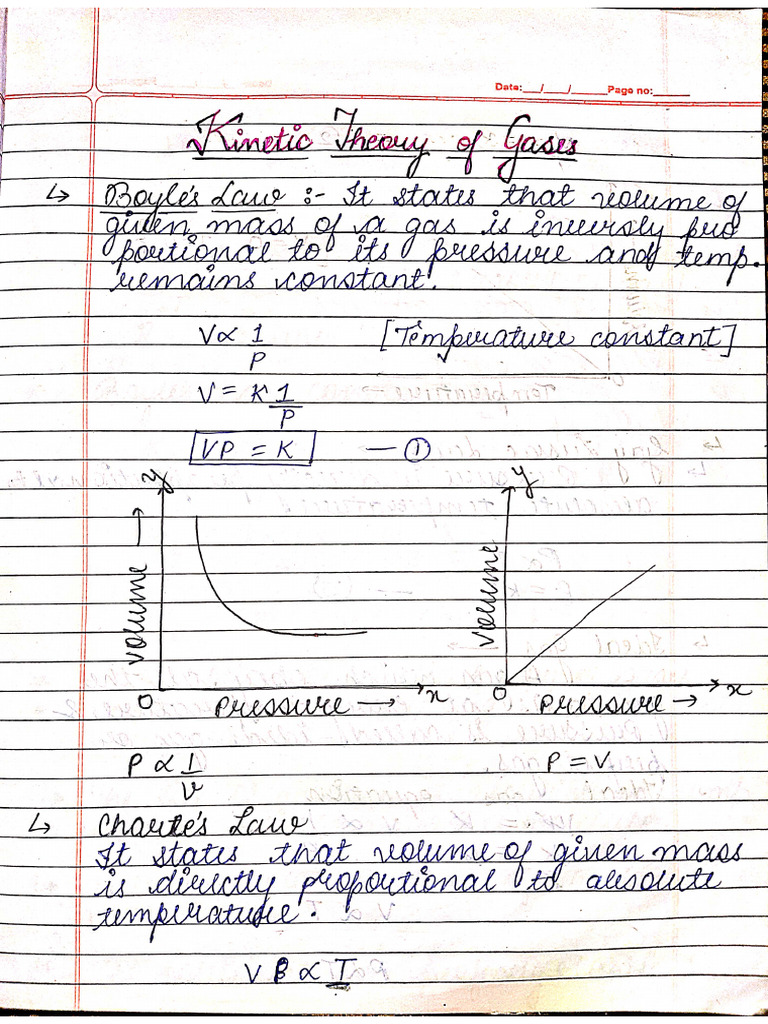 Date:___/___/_____Page no:_____
Kinetic Theory of Gases
↳ Boyle's Law :- It states that volume of
given mass of a gas is inversly pro
portional to its pressure and temp.
remains constant.
V ∝ 1/P [Temperature constant]
V = K 1/P
VP = K — ①
y y
volume → volume
O pressure → x O pressure → x
P ∝ 1/V P = V
↳ Charle's Law
It states that volume of given mass
is directly proportional to absolute
temperature.
V ∝ T